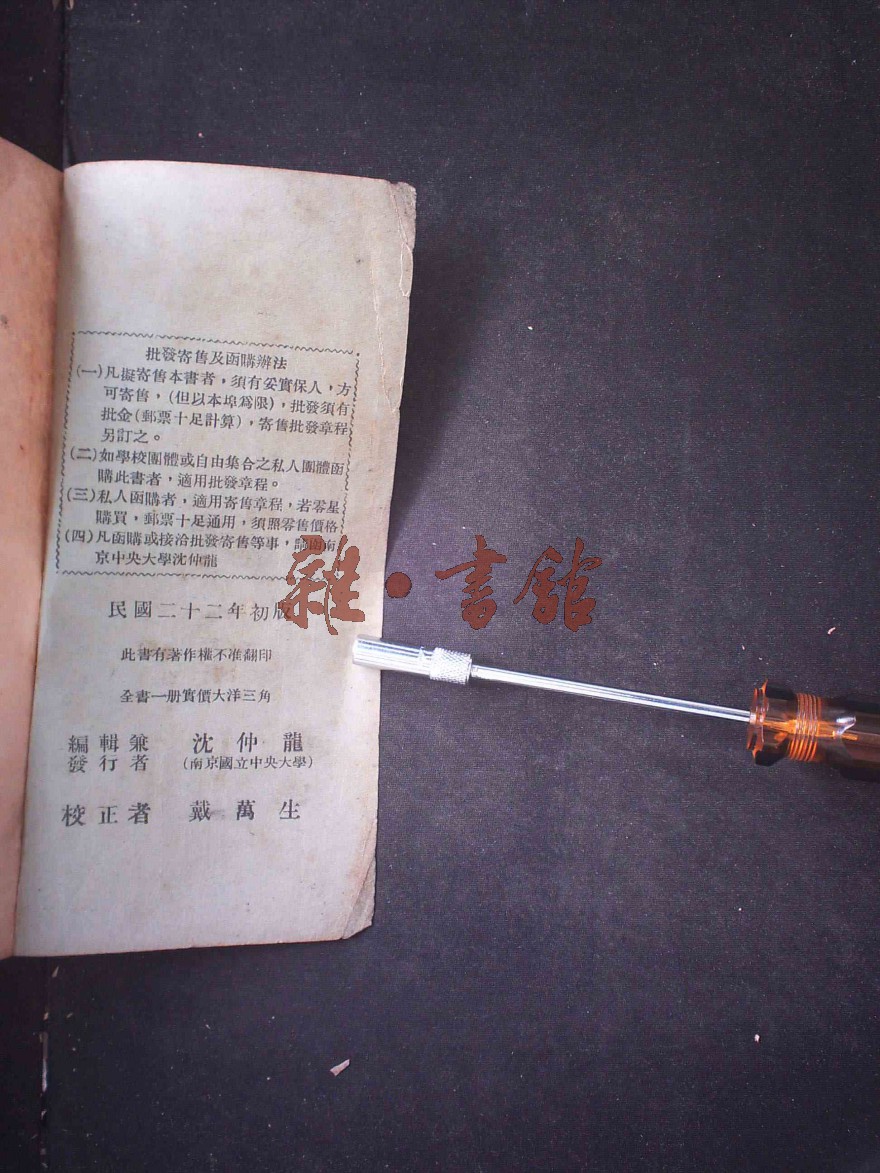 批發寄售及函購辦法
(一)凡擬寄售本書者，須有妥實保人，方
可寄售，(但以本埠爲限)，批發須有
批金(郵票十足計算)，寄售批發章程
另訂之。
(二)如學校團體或自由集合之私人團體函
購此書者，適用批發章程。
(三)私人函購者，適用寄售章程，若零星
購買，郵票十足通用，須照零售價格
(四)凡函購或接洽批發寄售等事，請函南
京中央大學沈仲龍
民國二十二年初版
此書有著作權不准翻印
全書一册實價大洋三角
編輯兼
發行者
沈仲龍
(南京國立中央大學)
校正者 戴萬生
雜·書館